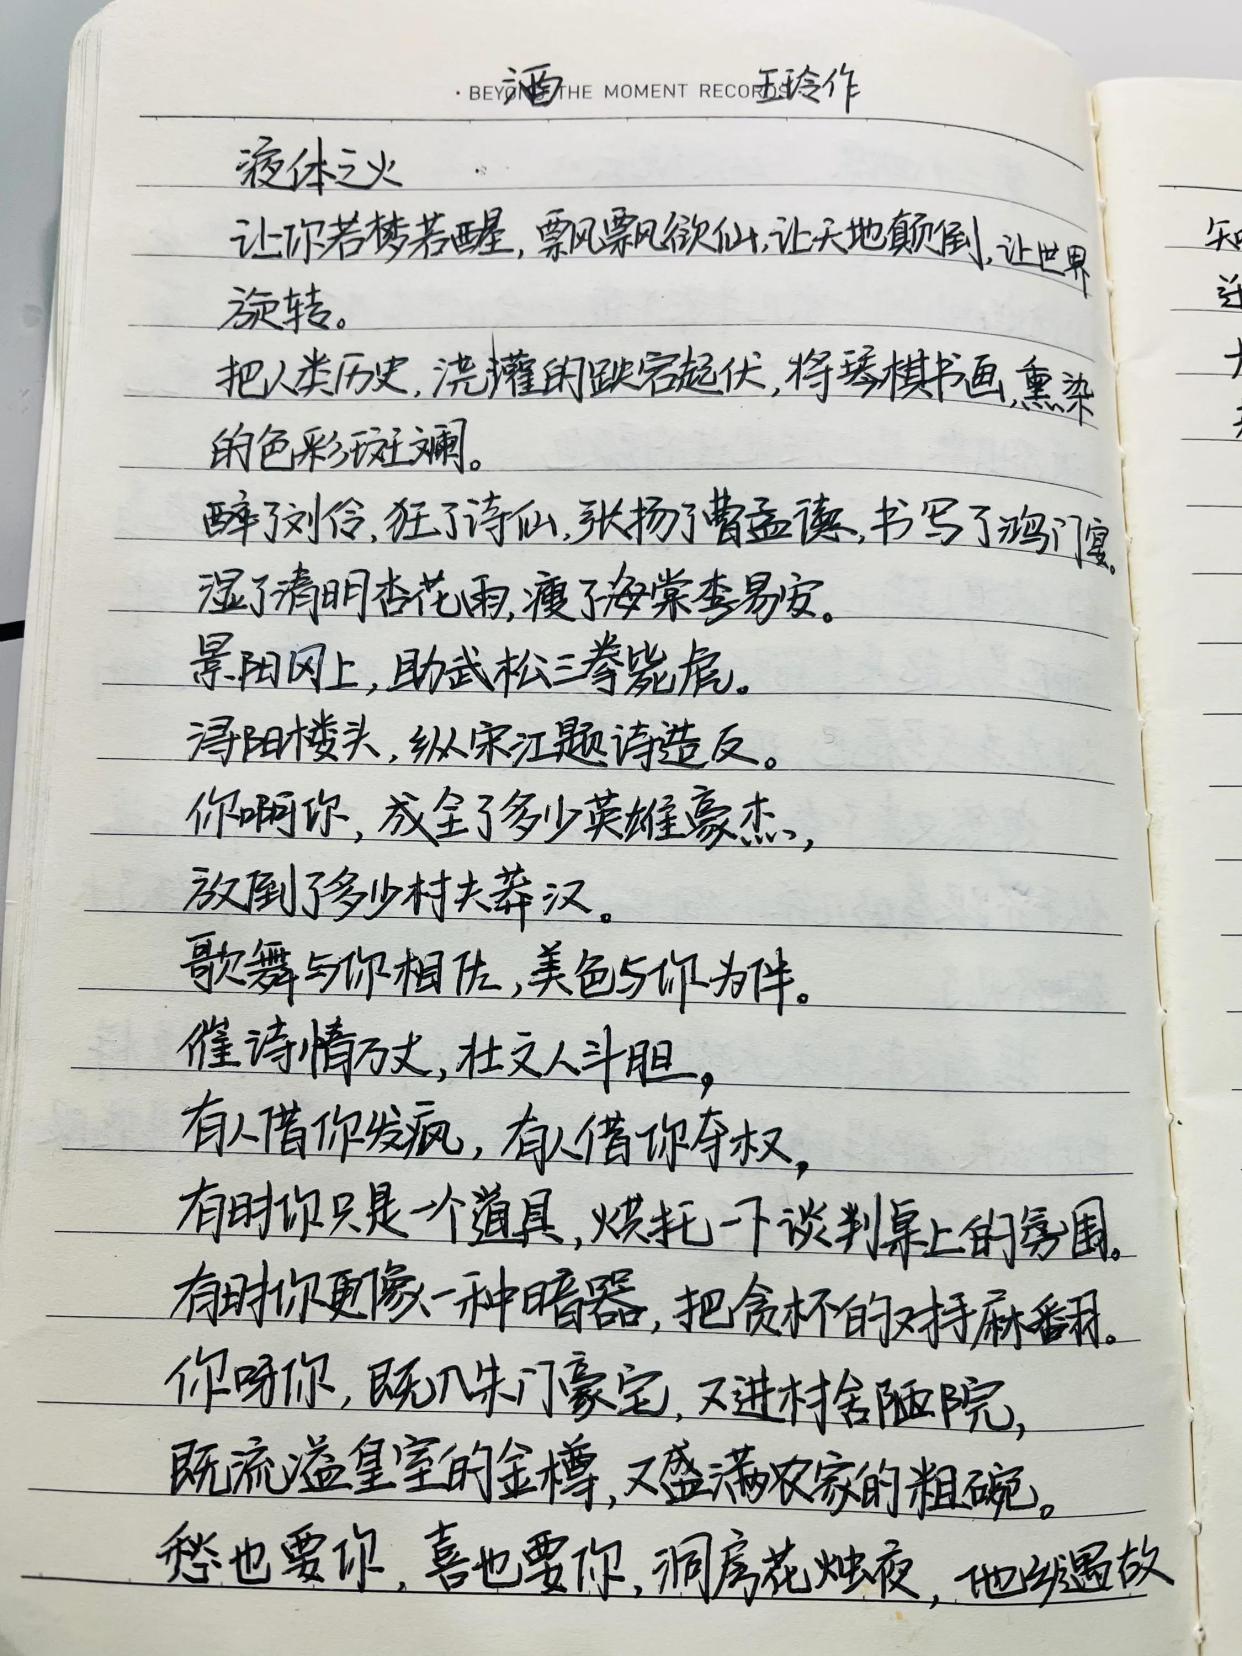 酒 王玲作
· BEYOND THE MOMENT RECORDS
液体之火
让你若梦若醒，飘飘欲仙，让天地颠倒，让世界
旋转。
把人类历史，浇灌的跌宕起伏，将琴棋书画，熏染
的色彩斑斓。
醉了刘伶，狂了诗仙，张扬了曹孟德，书写了鸿门宴。
湿了清明杏花雨，瘦了海棠李易安。
景阳冈上，助武松三拳毙虎。
浔阳楼头，纵宋江题诗造反。
你啊你，成全了多少英雄豪杰，
放倒了多少村夫莽汉。
歌舞与你相佐，美色与你为伴。
催诗情万丈，壮文人斗胆，
有人借你发疯，有人借你夺权，
有时你只是一个道具，烘托一下谈判桌上的氛围。
有时你更像一种暗器，把贪杯的对手麻翻。
你呀你，既入朱门豪宅，又进村舍陋院，
既流溢皇室的金樽，又盛满农家的粗碗。
愁也要你，喜也要你，洞房花烛夜，他乡遇故